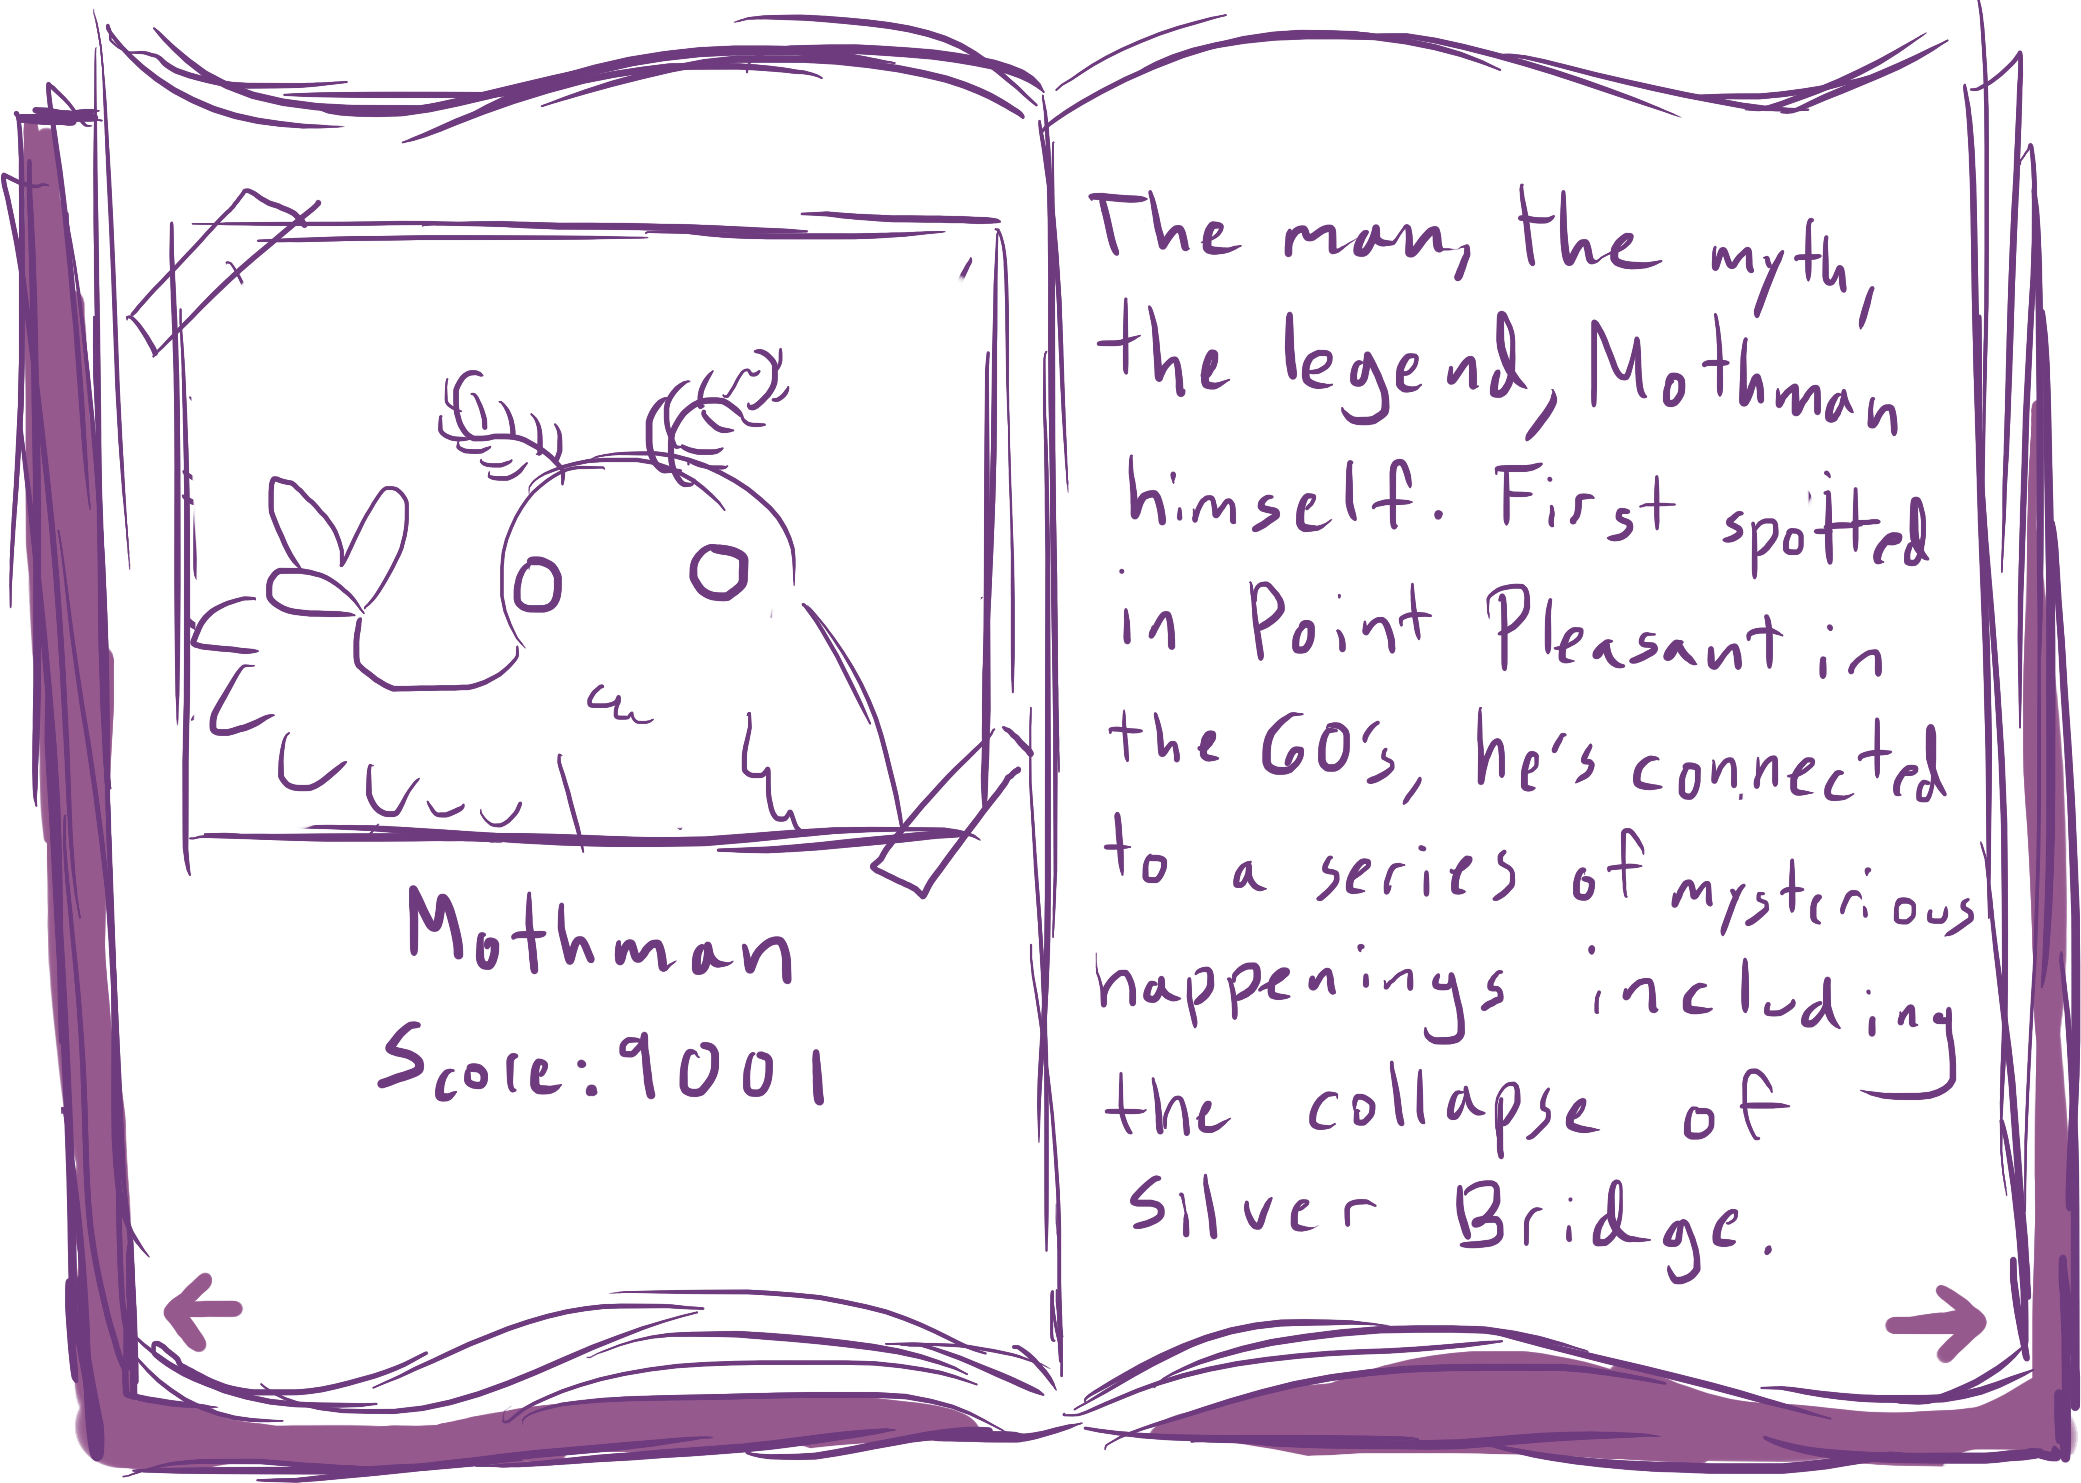 Mothman
Score: 9001
The man, the myth,
the legend, Mothman
himself. First spotted
in Point Pleasant in
the 60's, he's connected
to a series of mysterious
happenings including
the collapse of
Silver Bridge.